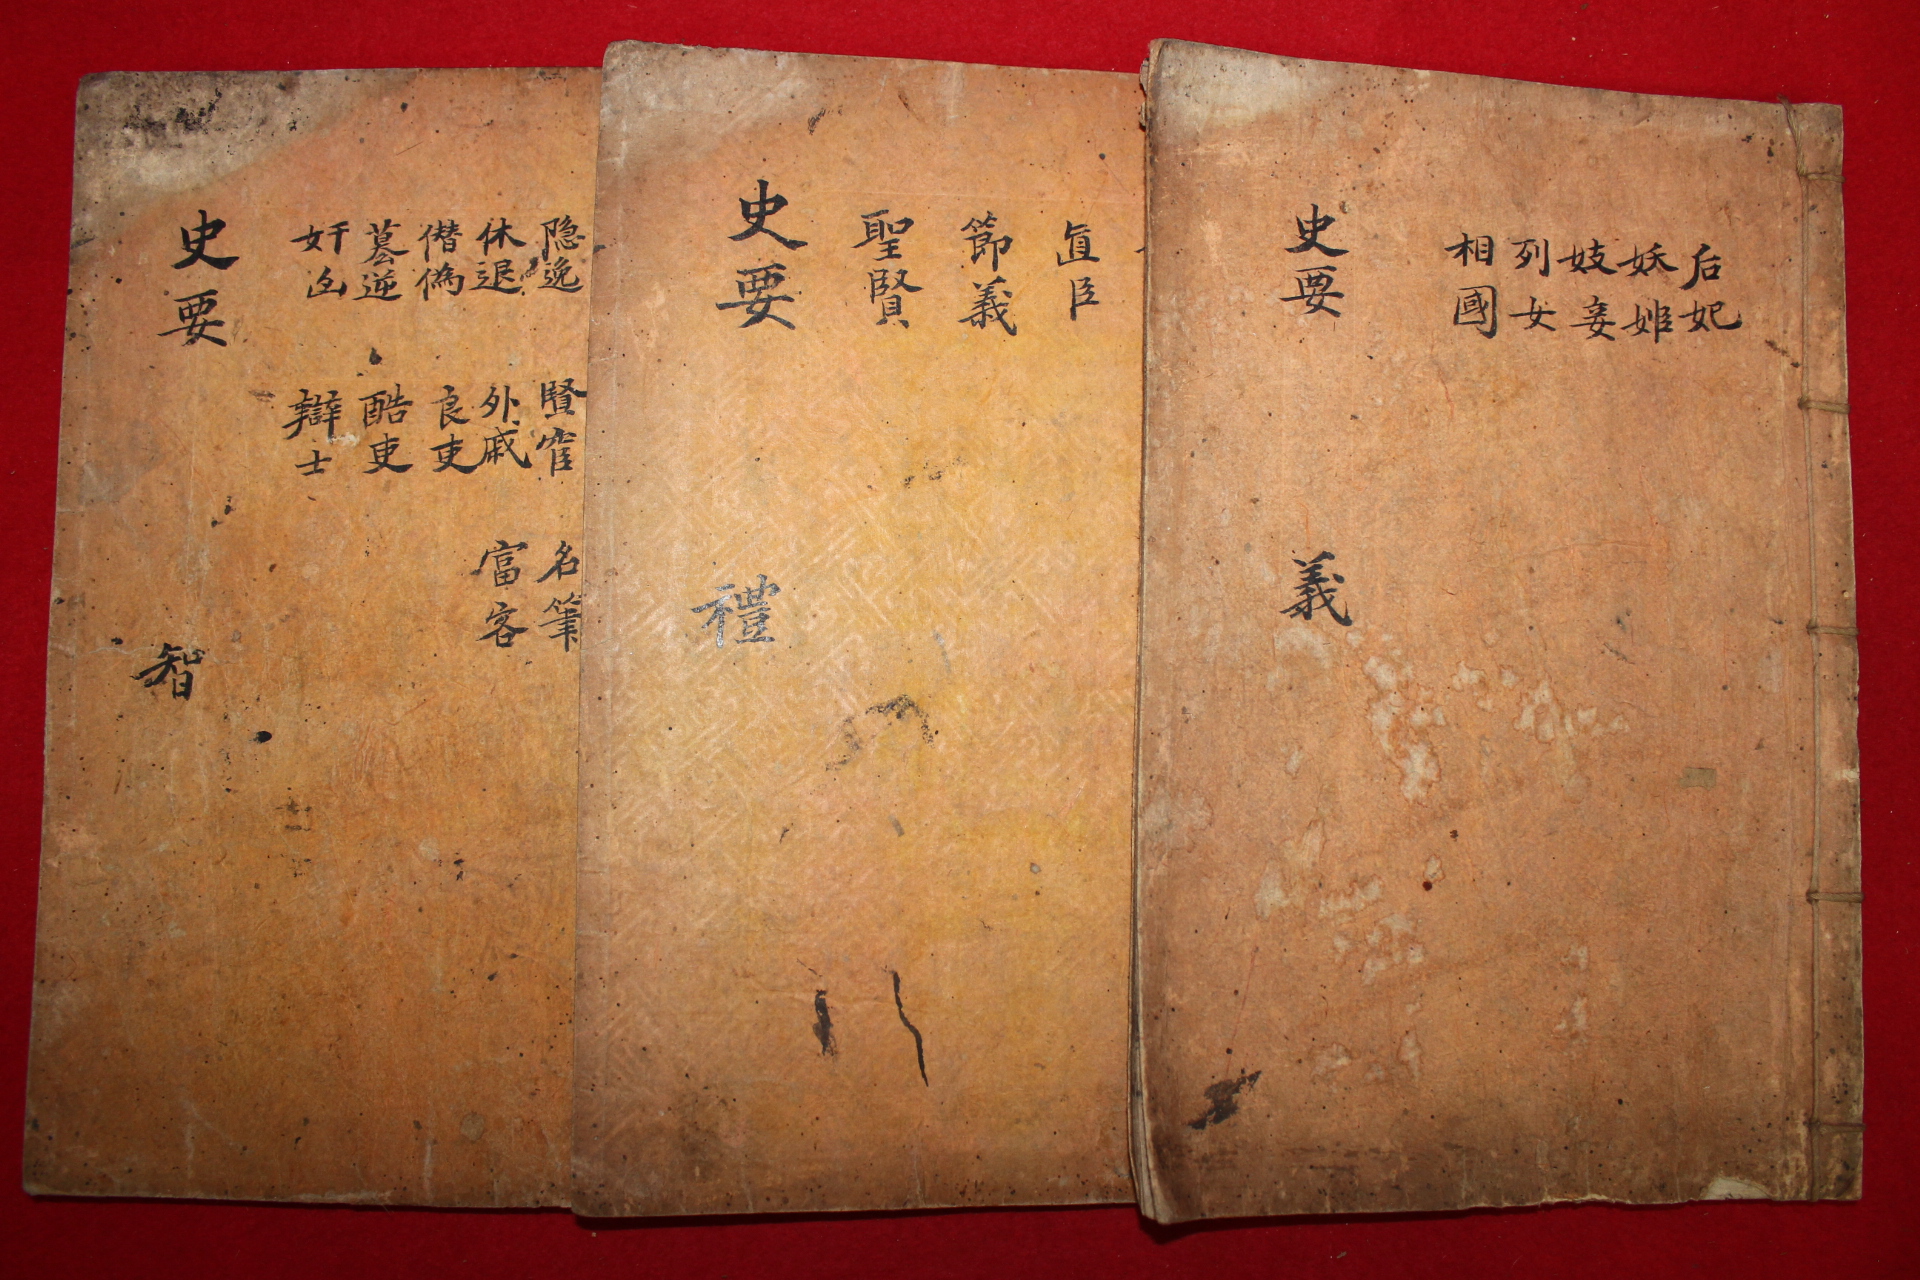 后妃
妖姫
妓妾
列女
相國
史要
義
直臣
節義
聖賢
史要
禮
隐逸 賢宦 名筆
休退 外戚 富客
僭偽 良吏
簒逆 酷吏
奸凶 辯士
史要
智